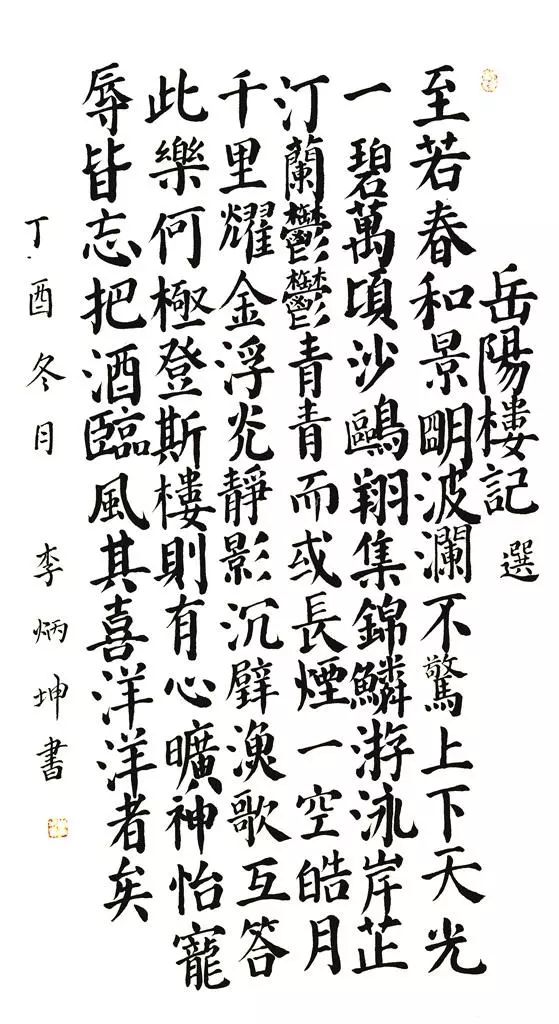 岳陽樓記 選
至若春和景明波瀾不驚上下天光
一碧萬頃沙鷗翔集錦鱗游泳岸芷
汀蘭鬱鬱青青而或長煙一空皓月
千里耀金浮光靜影沉璧漁歌互答
此樂何極登斯樓則有心曠神怡寵
辱皆忘把酒臨風其喜洋洋者矣
丁酉冬月 李炳坤書